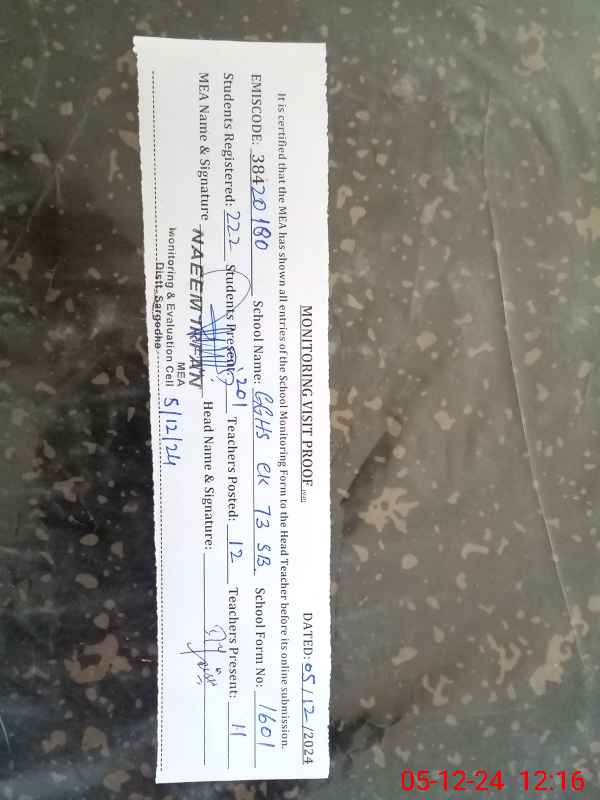 MONITORING VISIT PROOF DATED: 05/12/2024
It is certified that the MEA has shown all entries of the School Monitoring Form to the Head Teacher before its online submission.
EMISCODE: 38420180 School Name: GGHS CK 73 SB School Form No: 1601
Students Registered: 222 Students Present: 201 Teachers Posted: 12 Teachers Present: 11
MEA Name & Signature NAEEM IRFAN Head Name & Signature:
MEA
Monitoring & Evaluation Cell 5/12/24
Distt. Sargodha
05-12-24 12:16